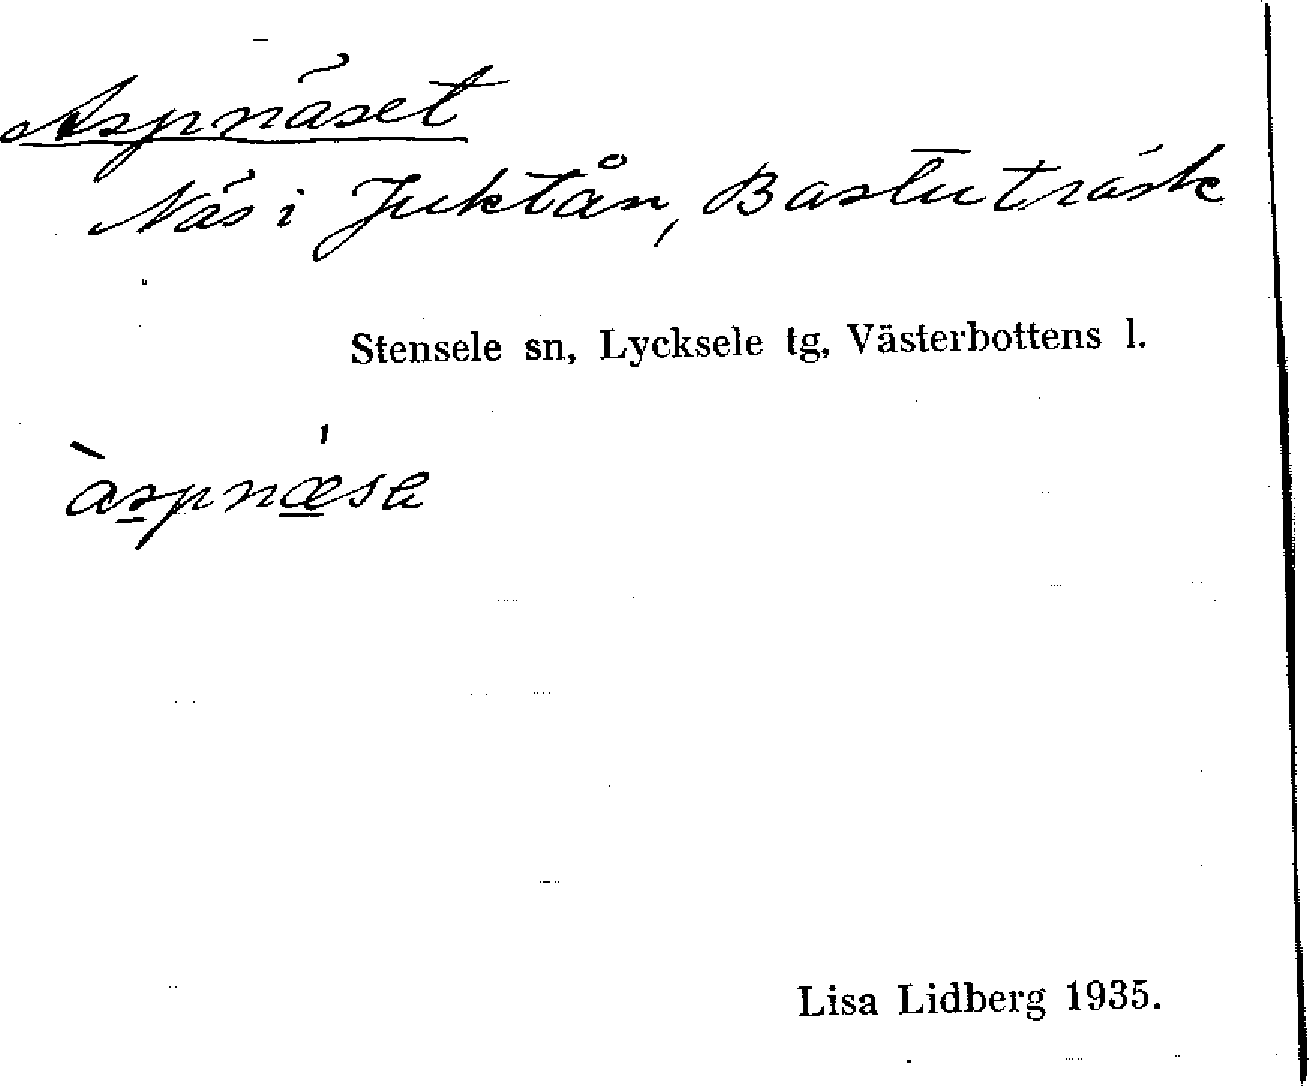 Aspnäset
Näs i Juktån, Bastuträsk
Stensele sn, Lycksele tg, Västerbottens l.
àspnǽsa
Lisa Lidberg 1935.